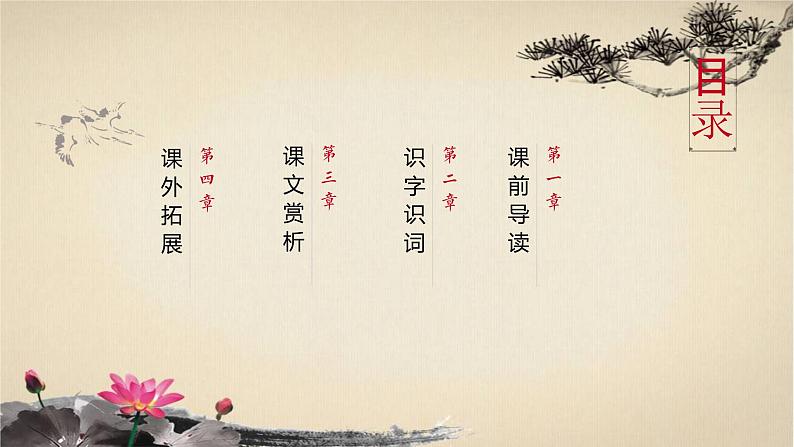 目录
第一章
课前导读
第二章
识字识词
第三章
课文赏析
第四章
课外拓展